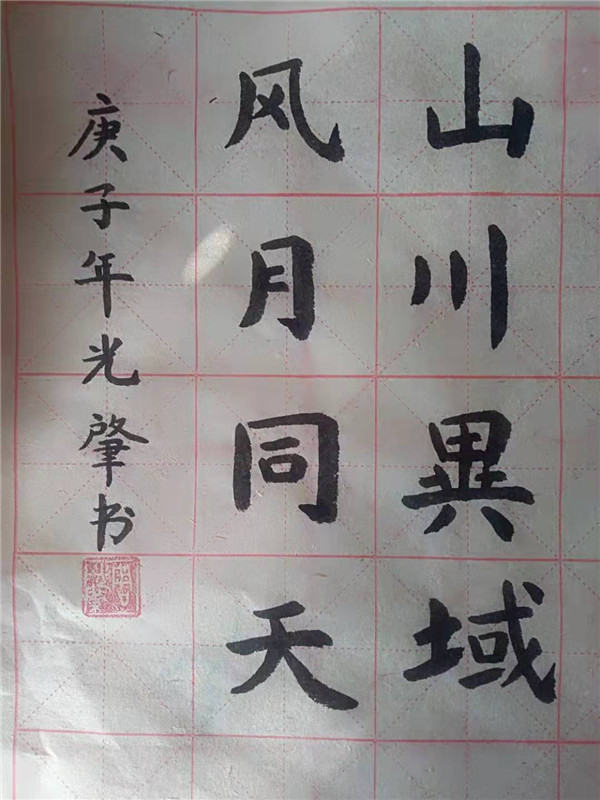 山川異域
风月同天
庚子年光肇书